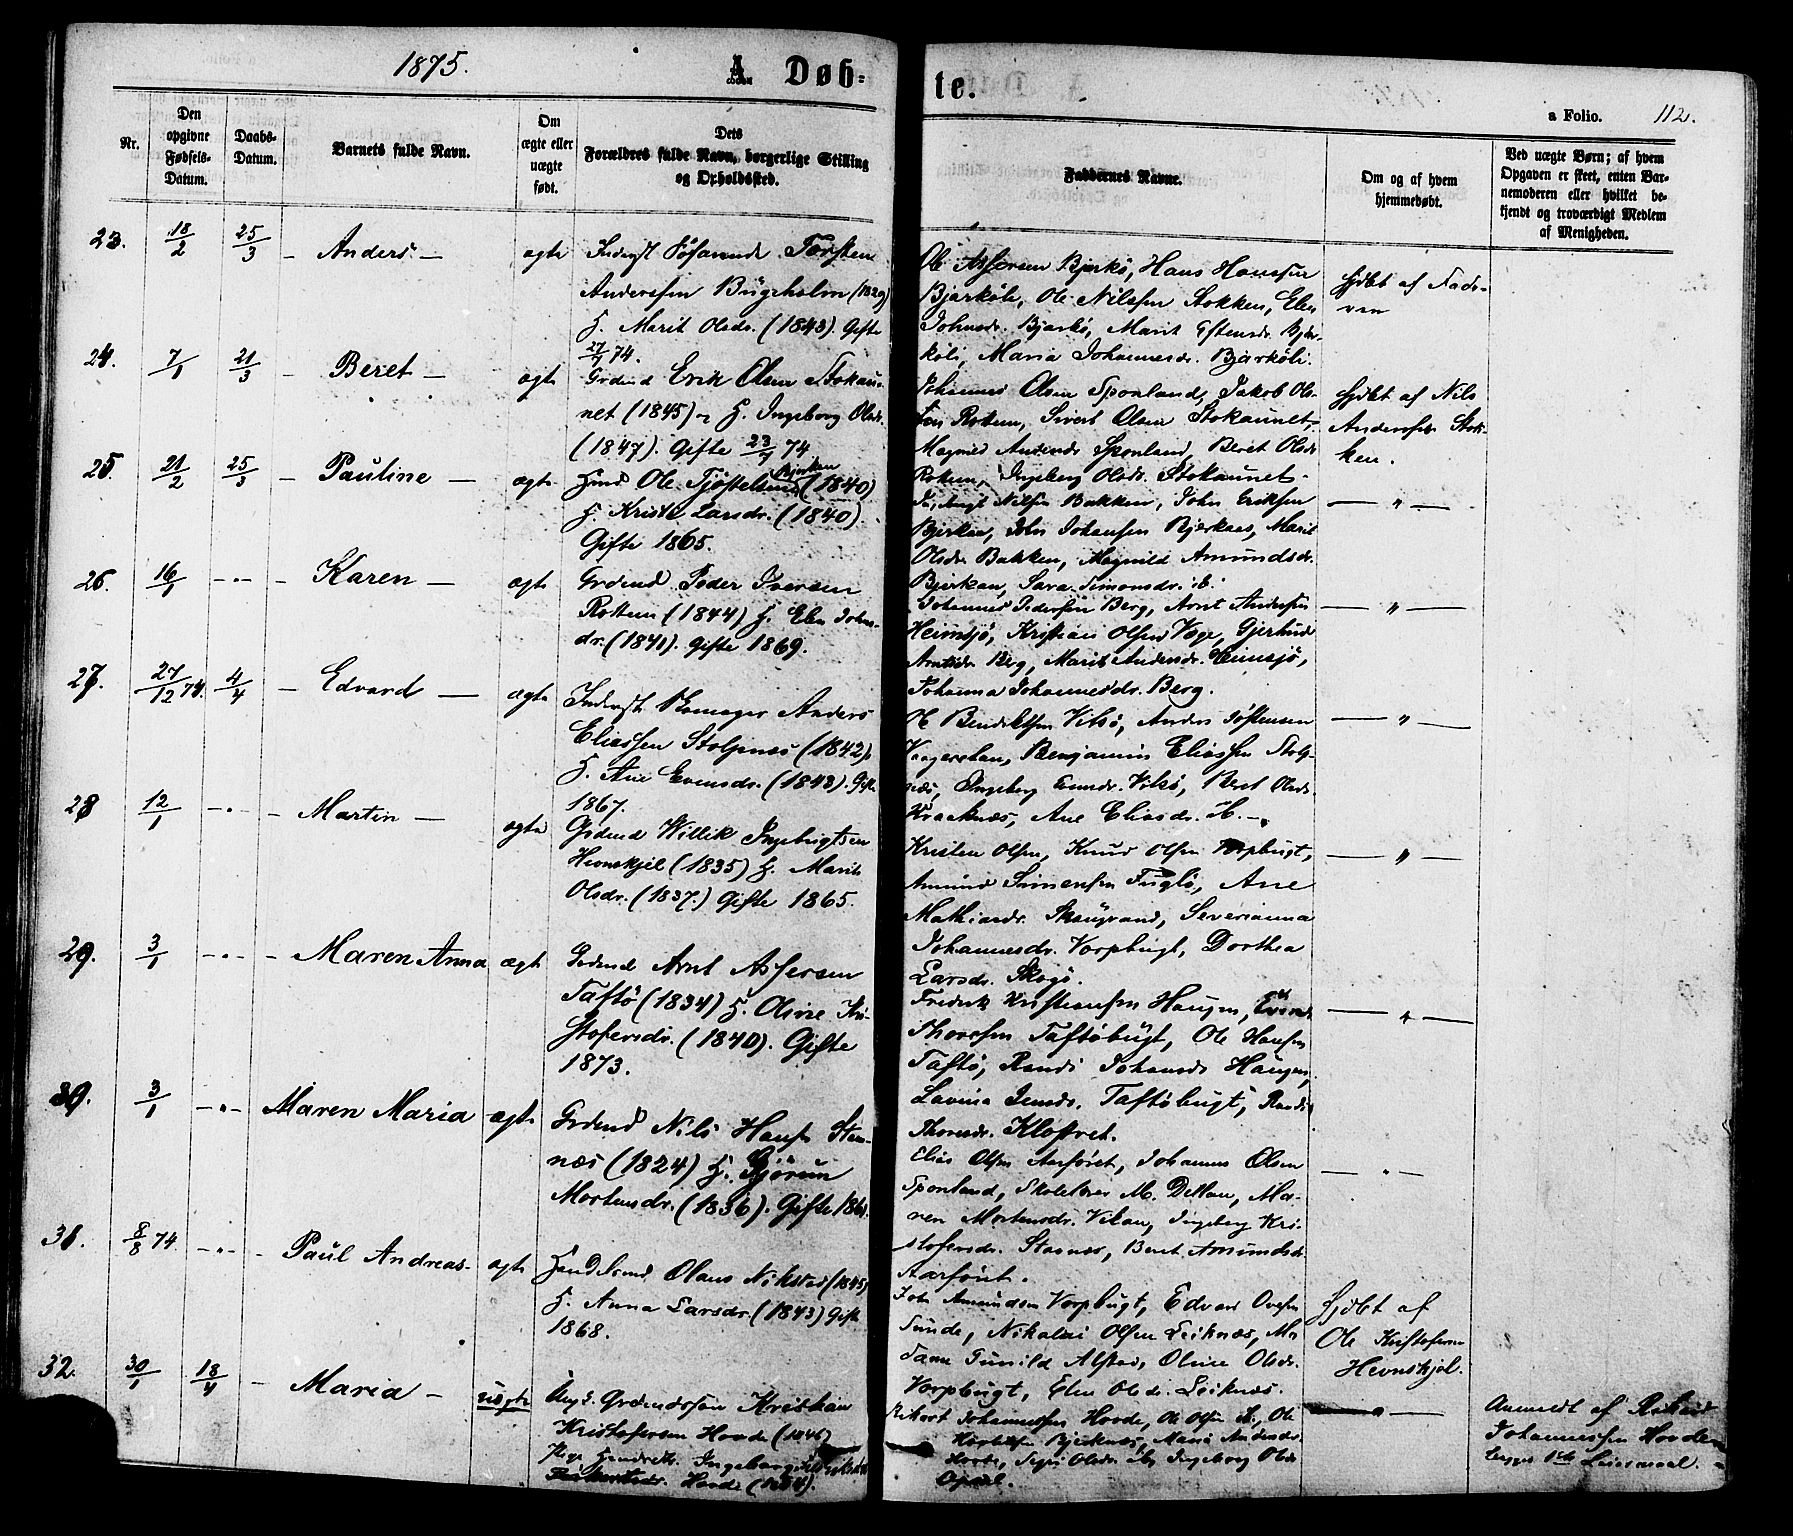 1875.
A Døb-
te.
a Folio. 112.
Nr.
Den
opgivne
Fødsels-
Datum.
Daabs-
Datum.
Barnets fulde Navn.
Om
ægte eller
uægte
født.
Dets
Forældres fulde Navn, borgerlige Stilling
og Opholdssted.
Faddernes Navne.
Om og af hvem
hjemmedøbt.
Ved uægte Børn; af hvem
Opgaven er skeet, enten Bar-
nemoderen eller hvilket be-
kjendt og troværdigt Medlem
af Menigheden.
23. 18/2 25/3 - Anders - ægte
Torsten
Anderssen Bügeholm (1829)
H. Marit Olsdr. (1843) Gifte
27/7 74.
Ole Assersen Bjerkö, Hans Hanssen
Bjarköli, Ole Nilssen Stokken, Elen
Johnsdr. Bjarkö, Marit Estensdr. Bjar-
köli, Maria Johannesdr. Bjarköli.
hjdbt af Fade-
ren
24. 7/1 21/3 - Beret - ægte
Grdmd Erik Olsen Stokau-
net (1845) og H. Ingeborg Olsdr.
(1847). Gifte 23/7 74
Johannes Olsen Sponland, Jakob Ols-
sen Rottem, Sivert Olsen Stokaunet,
Magnild Andersdr Sponland, Beret Olsdr
Rottem, Ingeberg Olsdr. Stokaunet.
hjdbt af Nils
Anderssen Stok-
ken.
25. 21/2 25/3 - Pauline - ægte
Hmd Ole Tjöstelsen Bjerkan (1840)
H. Kristi Larsdr. (1840)
Gifte 1865.
Nilsen Bakken, John Eriksen
Bjerkan, John Johansen Bjerknes, Marit
Olsdr Bakken, Magnild Amundsdr.
Bjerkan, Sara Simonsdr. ib.
— " —
26. 16/1 - " - - Karen - ægte
Grdmd Peder Iversen
Rottem (1844) H. Elen Johns-
dr. (1841). Gifte 1869.
Johannes Pedersen Berg, Arnt Andersen
Heimsjö, Kristian Olsen Vage, Gjertrud
Arntsdr. Berg, Marit Andersdr. Heimsjö,
Johanna Johannesdr. Berg.
— " —
27. 27/12 74. 4/4 - Edvard - ægte
Inderst Skomager Anders
Eliassen Stolpnes (1842)
H. Ane Evensdr. (1843) Gifte
1867.
Ole Bendiktsen Vikö, Anders
Benjamin Eliassen Stolp-
næs, Ingeberg Evensdr. Vikö, Beret Olsdr.
Kraaknæs, Ane Eliasdr.
— " —
28 12/1 - " - - Martin - ægte
Grdmd Willik Ingebrigtsen
Hevnskjel (1835) H. Marit
Olsdr. (1837.) Gifte 1865.
Kristen Olsen, Knud Olsen Vorpbugt,
Amund Simensen Fuglö, Ane
Mathiasdr. Severianna
Johannesdr. Vorpbugt, Dorthea
Larsdr. Skogö.
— " —
29. 3/1 - " - - Maren Anna ægte
Grdmd Arnt Assersen
Taftö (1834) H. Oline Kri-
stofersdr. (1840). Gifte
1873.
Fredrik Kristiansen Haugen, Evend
Thoresen Taftöbugt, Ole Hansen
Taftö, Randi Johansdr Haugen,
Lavina Jensdr. Taftöbugt, Randi
Thoresdr. Klostret.
— " —
30. 3/1 - " - Maren Maria ægte
Grdmd Nils Hansen Sten-
næs (1824) H. Gjörun
Mortensdr. (1836). Gifte 1861.
Elias Olsen Aarsöret, Johannes Olsen
Sponland, Skolelærer M. Dellan, Ma-
ren Mortensdr. Vikan, Ingeberg Kri-
stofersdr. Stennes, Beret Amundsdr
Aarsöret.
— " —
31. 8/8 74. - " - - Paul Andreas - ægte
Handelsmd Olaus Nikstad (1845)
H. Anna Larsdr. (1843) Gifte
1868.
John Amundsen Vorpbugt, Edvard Ovesen
Sunde, Nikolai Olsen Leiknæs, Ma-
dame Gunild Alstad, Oline Olsdr.
Vorpbugt, Elen Olsdr. Leiknæs.
hjdbt af
Ole Kristofersen
Hevnskjel.
32. 30/1 18/4 - Maria - uægte
Ung. Grdmdssøn Kristian
Kristofersen Hovde (1846)
Pige Ingeborg
Hovde (1854).
Rikart Johannessen Hovde, Ole Olsen ib., Ole
Bjerknes, Maria Andersdr.
Hovde, Olsdr. ib, Ingeborg Olsdr
Opdal.
— " —
Anmeldt af Rikard
Johannessen Hovde.
begges 1ste Leiermaal.